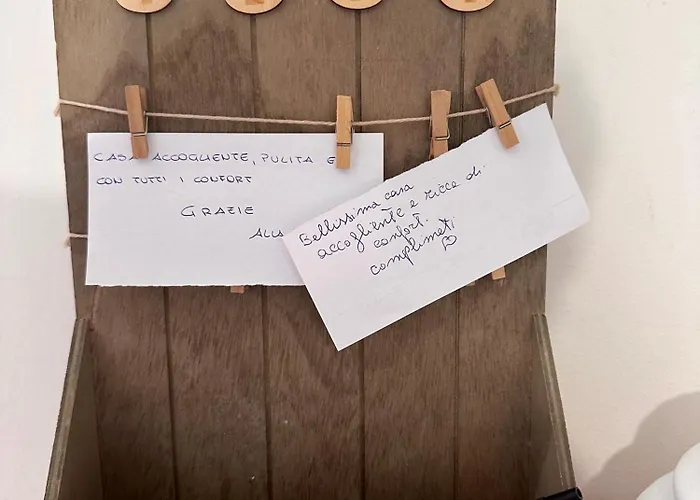 CASA ACCOGLIENTE, PULITA E
CON TUTTI I CONFORT
GRAZIE
Bellissima casa
accogliente e ricca di
confort.
complimeti